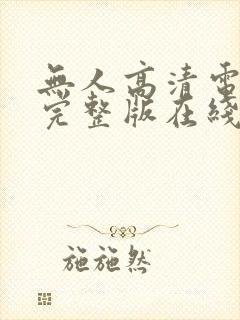 無人高清電
完整版在綫
施施然